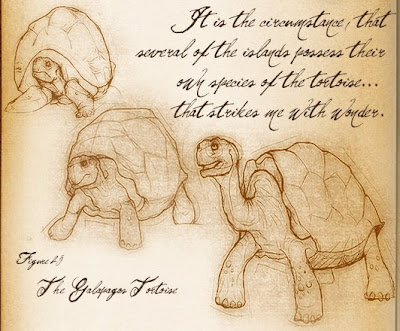 It is the circumstance, that
several of the islands possess their
own species of the tortoise...
that strikes me with wonder.
Figure
The Galapagos Tortoise